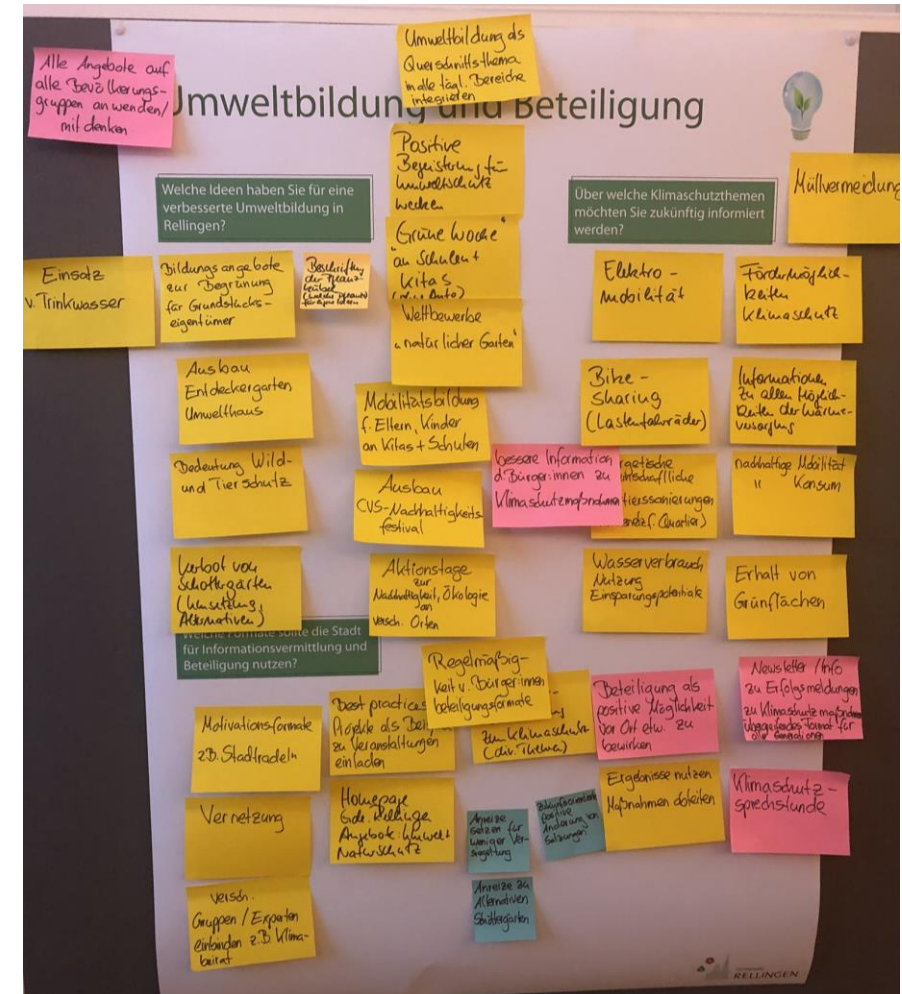 Alle Angebote auf
alle Bevölkerungs-
gruppen anwenden/
mit denken
Umweltbildung als
Querschnittsthema
in alle tägl. Bereiche
integrieren
Umweltbildung und Beteiligung
Positive
Begeisterung für
Umweltschutz
wecken
Müllvermeidung
Welche Ideen haben Sie für eine
verbesserte Umweltbildung in
Rellingen?
Über welche Klimaschutzthemen
möchten Sie zukünftig informiert
werden?
"Grüne Woche"
an Schulen +
Kitas
Einsatz
v. Trinkwasser
Bildungsangebote
zur Begrünung
für Grundstücks-
eigentümer
Beschriftung
der
Wettbewerbe
"natürlicher Garten"
Elektro-
mobilität
Fördermöglich-
keiten
Klimaschutz
Ausbau
Entdeckergarten
Umwelthaus
Mobilitätsbildung
f. Eltern, Kinder
an Kitas + Schulen
Bike-
Sharing
(Lastenfahrräder)
Informationen
zu allen Möglich-
keiten der Wärme-
versorgung
Bedeutung Wild-
und Tierschutz
Ausbau
CVS-Nachhaltigkeits-
festival
bessere Information
d. Bürger:innen zu
Klimaschutzmaßnahmen
rgetische
tschaftliche
tierssanierungen
netz (Quartier)
nachhaltige Mobilität
" Konsum
Verbot von
Schottergärten
(Umsetzung,
Alternativen)
Aktionstage
zur
Nachhaltigkeit, Ökologie
an
versch. Orten
Wasserverbrauch
Nutzung
Einsparungspotentiale
Erhalt von
Grünflächen
Welche Formate sollte die Stadt
für Informationsvermittlung und
Beteiligung nutzen?
Regelmäßig-
keit v. Bürger:innen
beteiligungsformate
Motivationsformate
z.B. Stadtradeln
Best practices
Projekte als Beisp
zu Veranstaltungen
einladen
zum Klimaschutz
(div. Themen)
Beteiligung als
positive Möglichkeit
vor Ort etw. zu
bewirken
Newsletter / Info
zu Erfolgsmeldungen
zu Klimaschutzmaßnahmen
übergreifendes Format für
alle Generationen
Vernetzung
Homepage
Gde. Rellingen
Angebote: Umwelt
Naturschutz
Anreize
setzen für
weniger Ver-
siegelung
positive
Änderung von
Satzungen
Ergebnisse nutzen
Maßnahmen ableiten
Klimaschutz-
sprechstunde
versch.
Gruppen / Experten
einbinden z.B. Klima-
beirat
Anreize zu
Alternativen
RELLINGEN